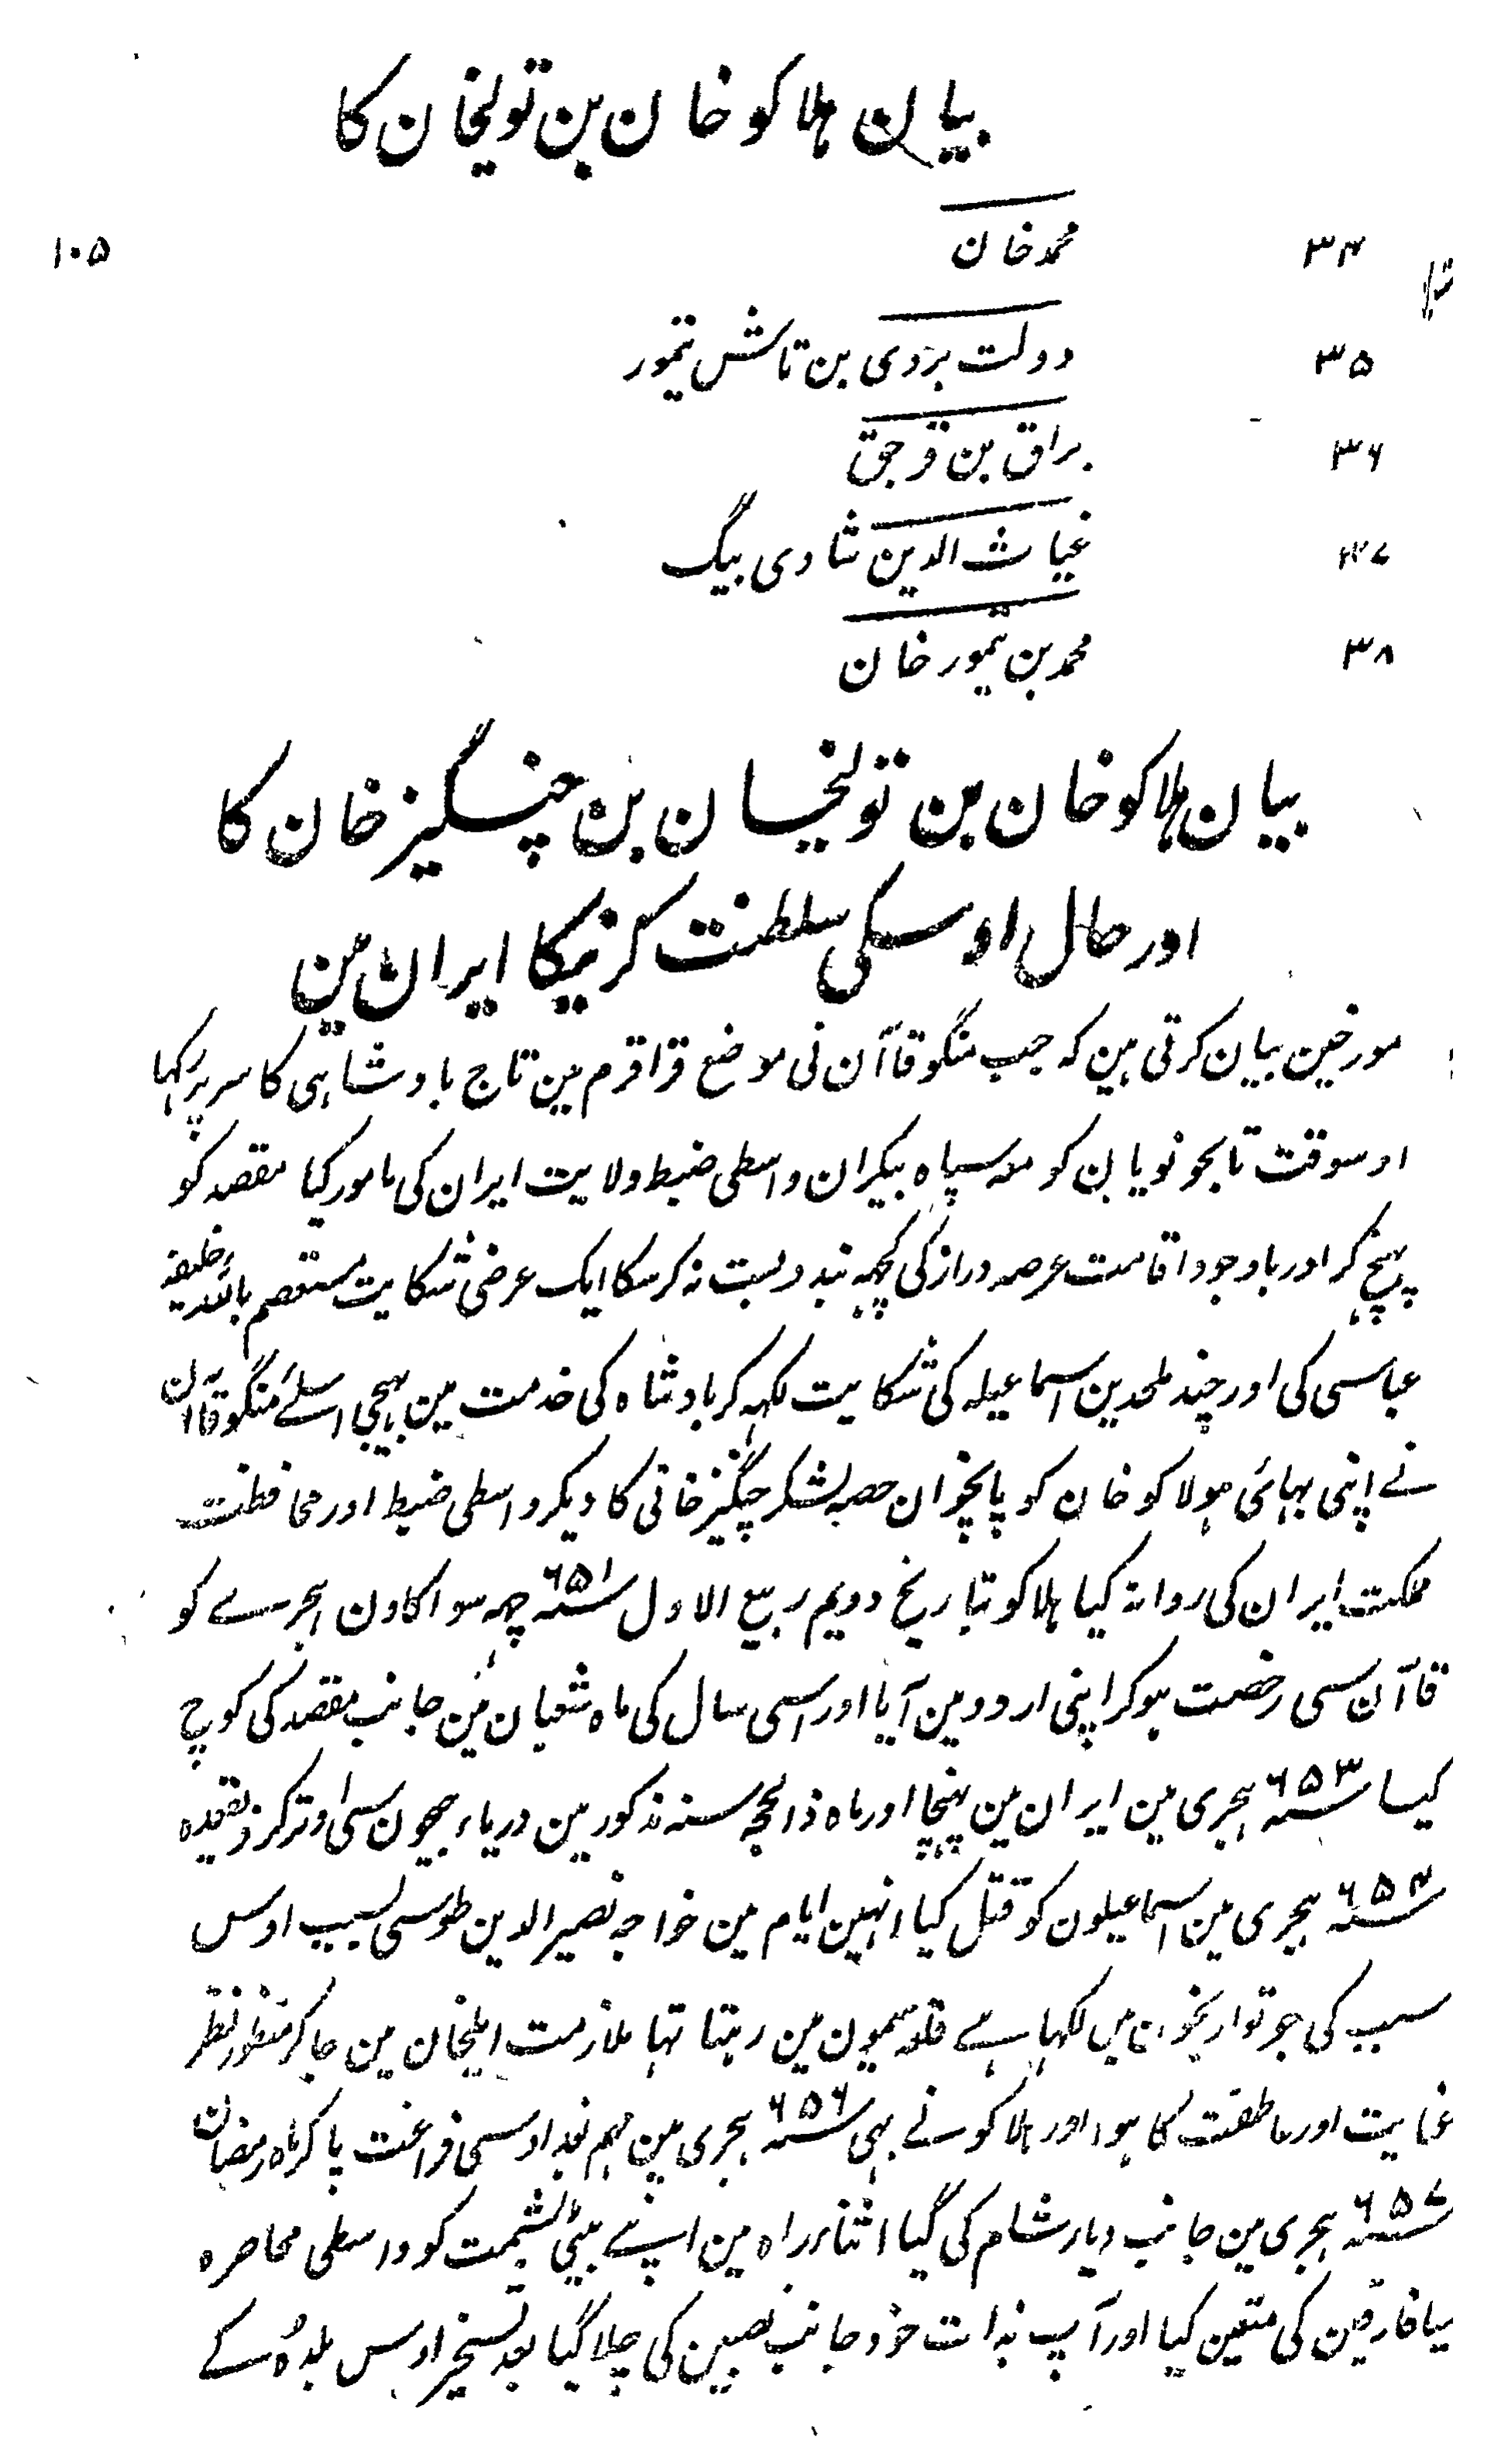 بیان ہلاکو خان بن تولیخان کا
۱۰۵
۳۴ محمد خان
۳۵ دولت بردی بن تاش تیمور
۳۶ براق بن قرجق
۳۷ غیاث الدین شادی بیگ
۳۸ محمد بن تیمور خان
بیان ہلاکو خان بن تولیخان بن چنگیز خان کا
اور حال اوسکی سلطنت کرنیکا ایران مین
مورخین بیان کرتی ہین کہ جب منگو قاآن نی موضع قراقرم مین تاج بادشاہی کا سر پر رکہا
اوسوقت تابجو نویان کو معہ سپاہ بیکران واسطی ضبط ولایت ایران کی مامور کیا مقصد کو
پہنچ کر اور باوجود اقامت عرصہ دراز کی کچہہ بندوبست نہ کر سکا ایک عرضی شکایت مستعصم باللہ خلیفہ
عباسی کی اور چند ملحدین اسماعیلہ کی شکایت لکہہ کر بادشاہ کی خدمت مین بہیجی اسلئے منگو قاآن
نے اپنی بہائی ہولاکو خان کو پانچوان حصہ لشکر چنگیز خانی کا دیکر واسطی ضبط اور محافظت
مملکت ایران کی روانہ کیا ہلاکو بتاریخ دویم ربیع الاول سنہ ۶۵۱ چہہ سو اکاون ہجرے کو
قاآن سی رخصت ہو کر اپنی اردو مین آیا اور اسی سال کی ماہ شعبان مین جانب مقصد کی کوچ
کیا سنہ ۶۵۳ ہجری مین ایران مین پہنچا اور ماہ ذالحجہ سنہ مذکور مین دریاء جیحون سی اوتر کر ذیقعدہ
سنہ ۶۵۴ ہجری مین اسماعیلون کو قتل کیا انہین ایام مین خواجہ نصیر الدین طوسی بسبب اوس
سبب کی جو تواریخون مین لکہا ہے قلعہ میمون مین رہتا تہا ملازمت ایلخان مین جا کر منظور نظر
عنایت اور عاطفت کا ہوا اور ہلاکو نے بہی سنہ ۶۵۶ ہجری مین مہم بغداد سی فراغت پا کر ماہ رمضان
سنہ ۶۵۷ ہجری مین جانب دیار شام کی گیا اثناء راہ مین اپنے بیٹی یشمت کو واسطی محاصرہ
میافارقین کی متعین کیا اور آپ بذات خود جانب نصیبین کی چلا گیا بعد تسخیر اوس بلدہ کے